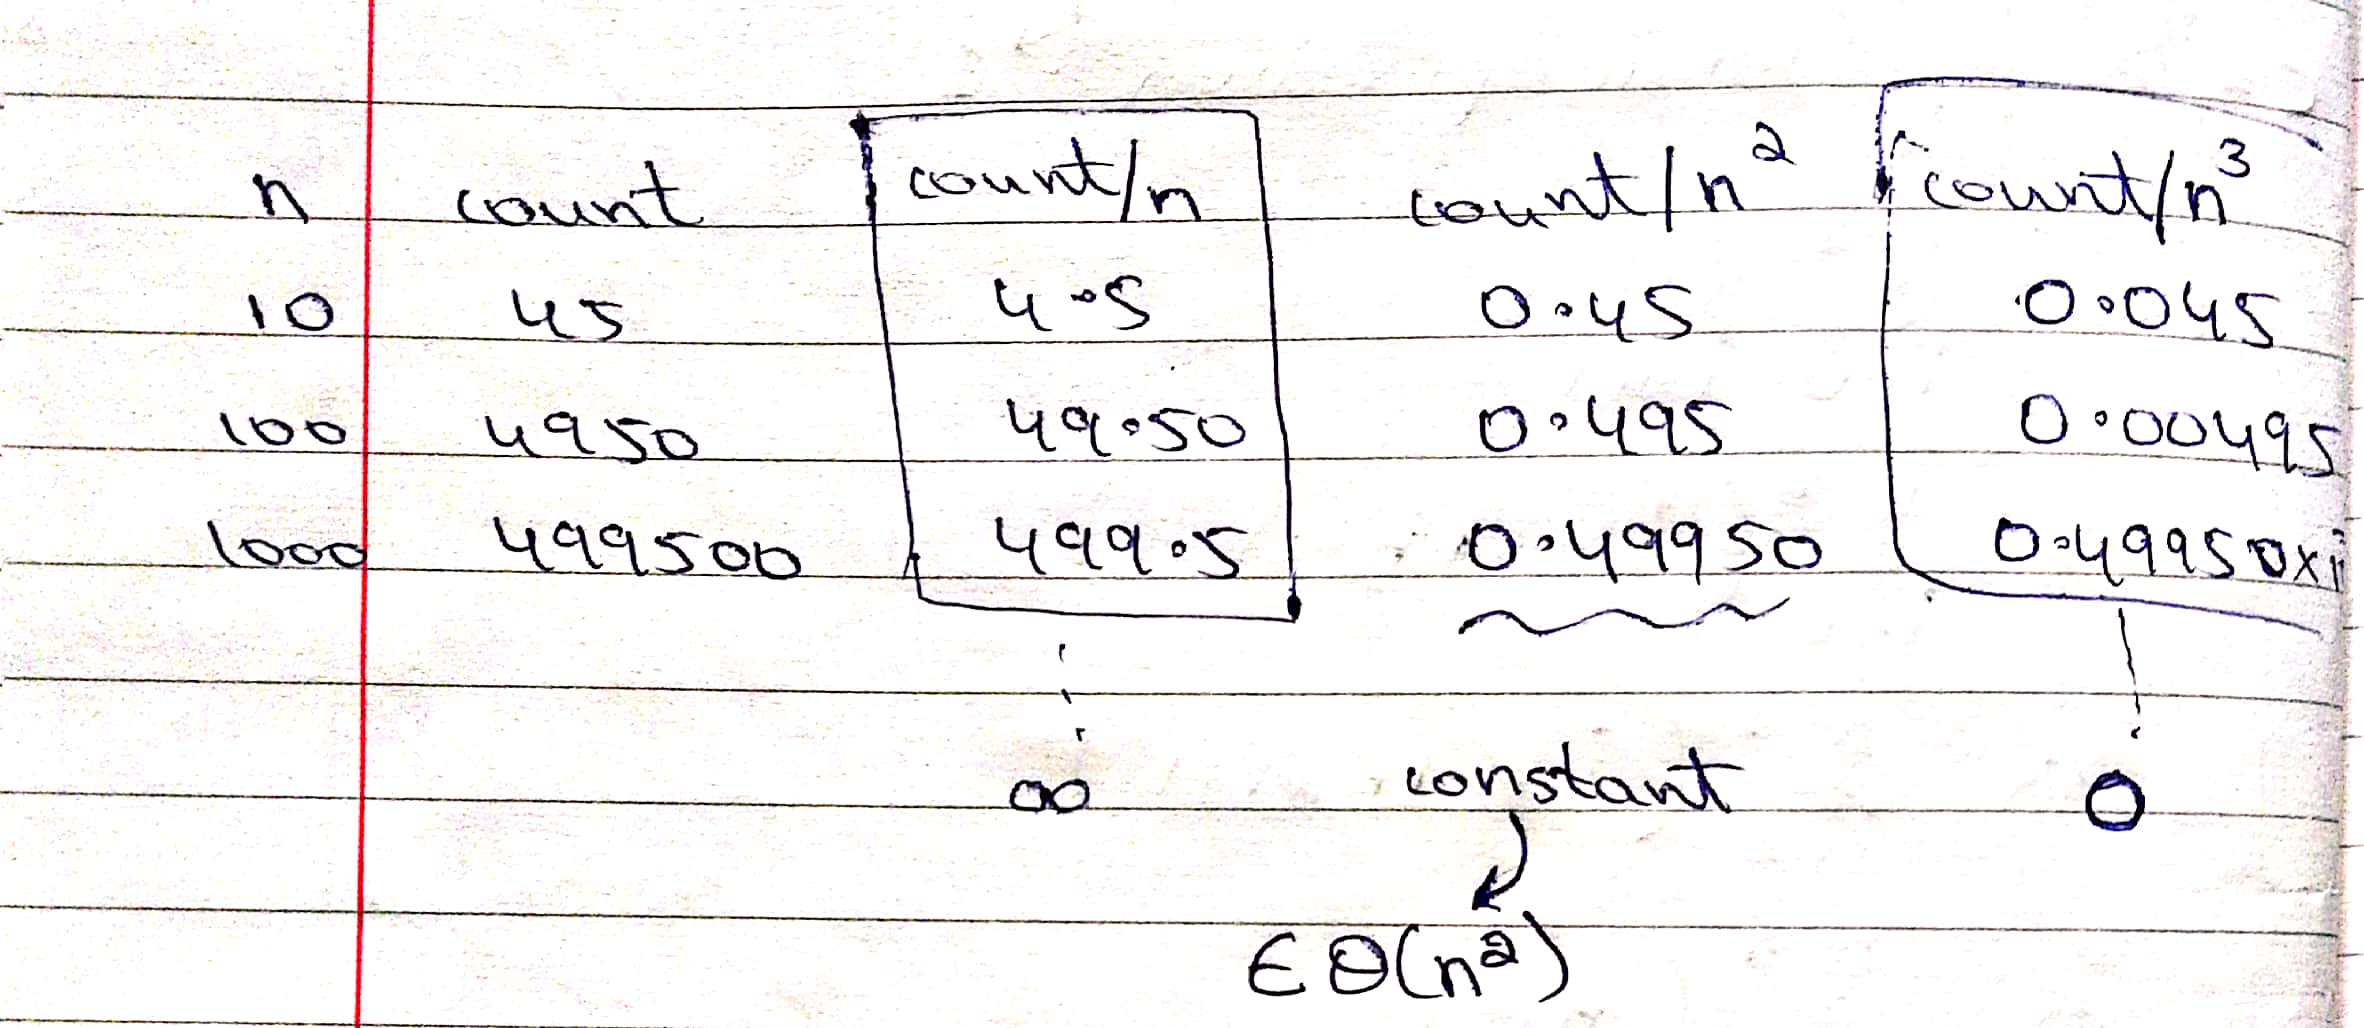 n count count/n count/n² count/n³
10 45 4.5 0.45 0.045
100 4950 49.50 0.495 0.00495
1000 499500 499.5 0.49950 0.49950x
∞ constant 0
∈ Θ(n²)